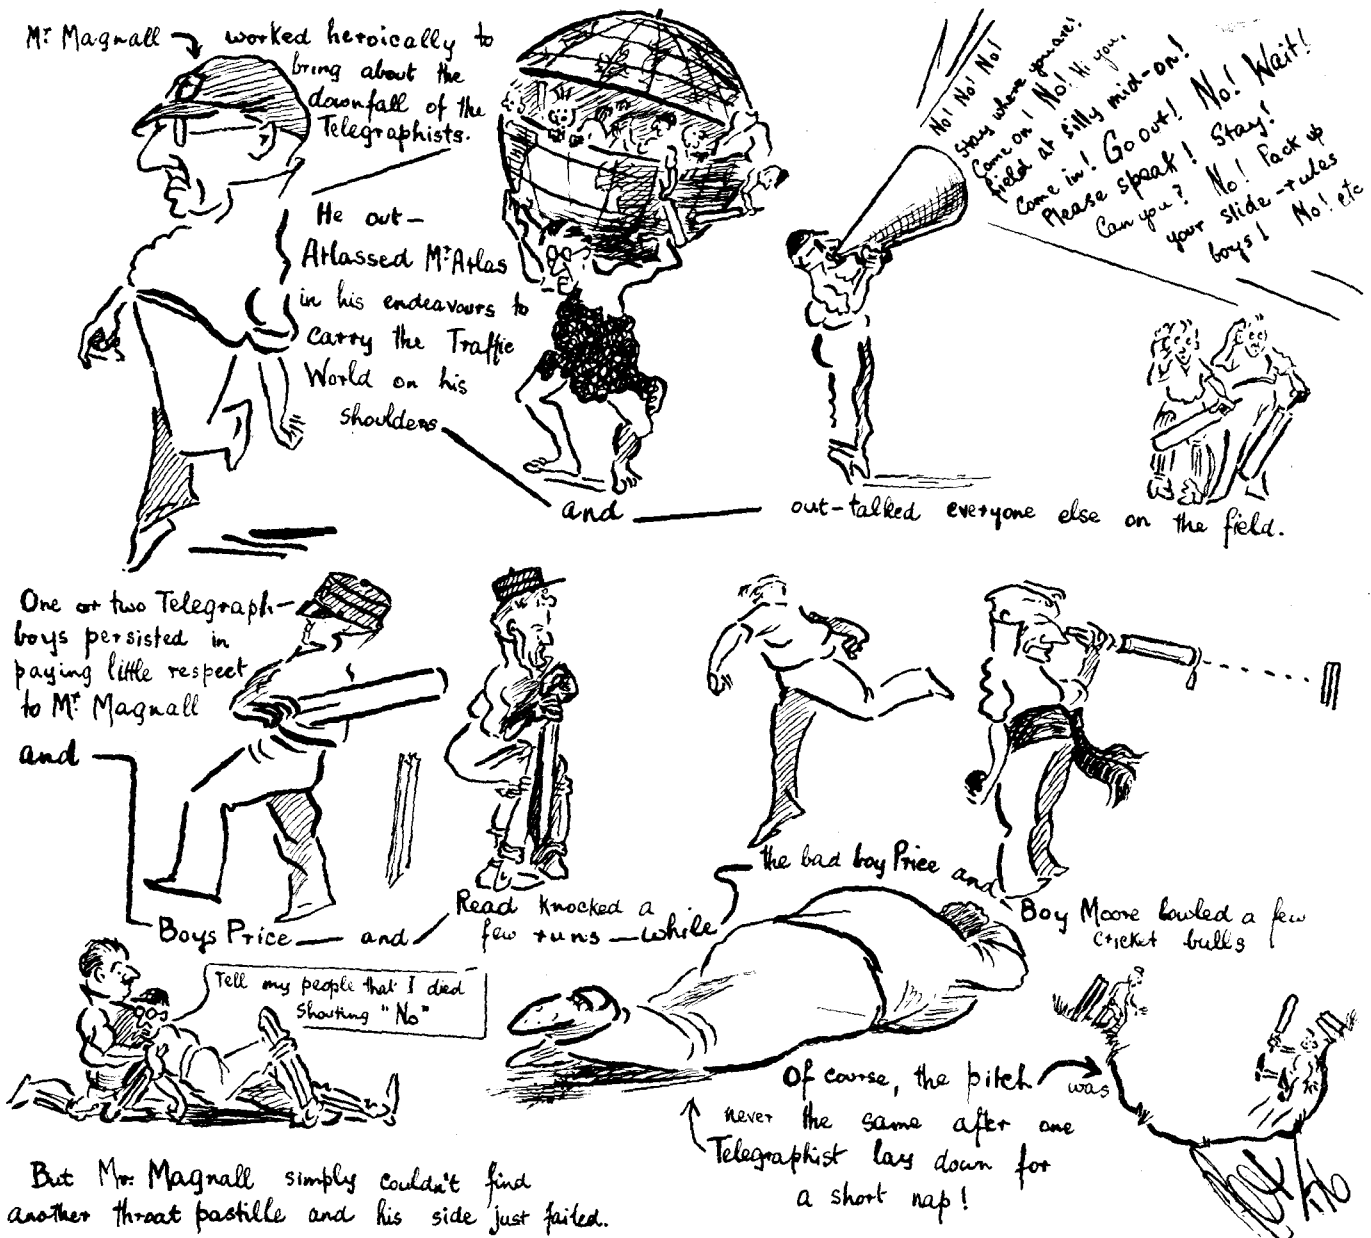 Mr. Magnall
worked heroically to
bring about the
downfall of the
Telegraphists.
He out-
Atlassed Mr. Atlas
in his endeavours to
carry the Traffic
World on his
shoulders
and
out-talked everyone else on the field.
No! No! No!
Stay where you are!
Come on! No! Hi you,
field at silly mid-on!
Come in! Go out! No! Wait!
Please speak! Stay!
Can you? No! Pack up
your slide-rules
boys! No! etc
One or two Telegraph-
boys persisted in
paying little respect
to Mr. Magnall
and
Boys Price and
Read knocked a
few runs — while
the bad boy Price and
Boy Moore bowled a few
cricket balls
Tell my people that I died
Shouting "No"
But Mr. Magnall simply couldn't find
another throat pastille and his side just failed.
Of course, the pitch was
never the same after one
Telegraphist lay down for
a short nap!